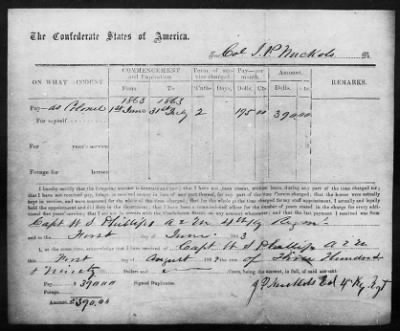 The Confederate States of America.
To Col J. P. Nuckols Dr.
ON WHAT ACCOUNT.
COMMENCEMENT and Expiration
Term of service charged.
Pay per month.
Amount.
REMARKS.
From To Mths. Days. Dolls. Cts. Dolls. Cts.
1863 1863
Pay— as Colonel 1st June 31st July 2 195 00 390 00
For myself
FOR years' service
FORAGE
I hereby certify that the foregoing account is accurate and just; that I have not been absent, during any part of the time charged for; that I
have not received pay, forage, or received money in lieu of any part thereof, for any part of the time charged; that the horses were actually
kept in service, and were mustered for the whole of the time charged; that for the whole of the time charged for my staff appointment, I actually and legally
held the appointment and did duty in the department; that I have been a commissioned officer for the number of years stated in the charge for every
additional five years' service; that I am not in arrears with the Confederate States on any account whatsoever; and that the last payment I received was from
Capt W. S. Phillips A Q M 4th Ky Regmt
and to the First day of June 1863
I, at the same time, acknowledge that I have received of Capt W S Phillips A Q M
this First day of August 1863 the sum of Three Hundred
& Ninety Dollars Cents, being the amount, in full, of said account.
Pay $ 390 00 Signed Duplicates.
Forage
Amount $ 390 00
J P Nuckols Col 4th Ky Regt